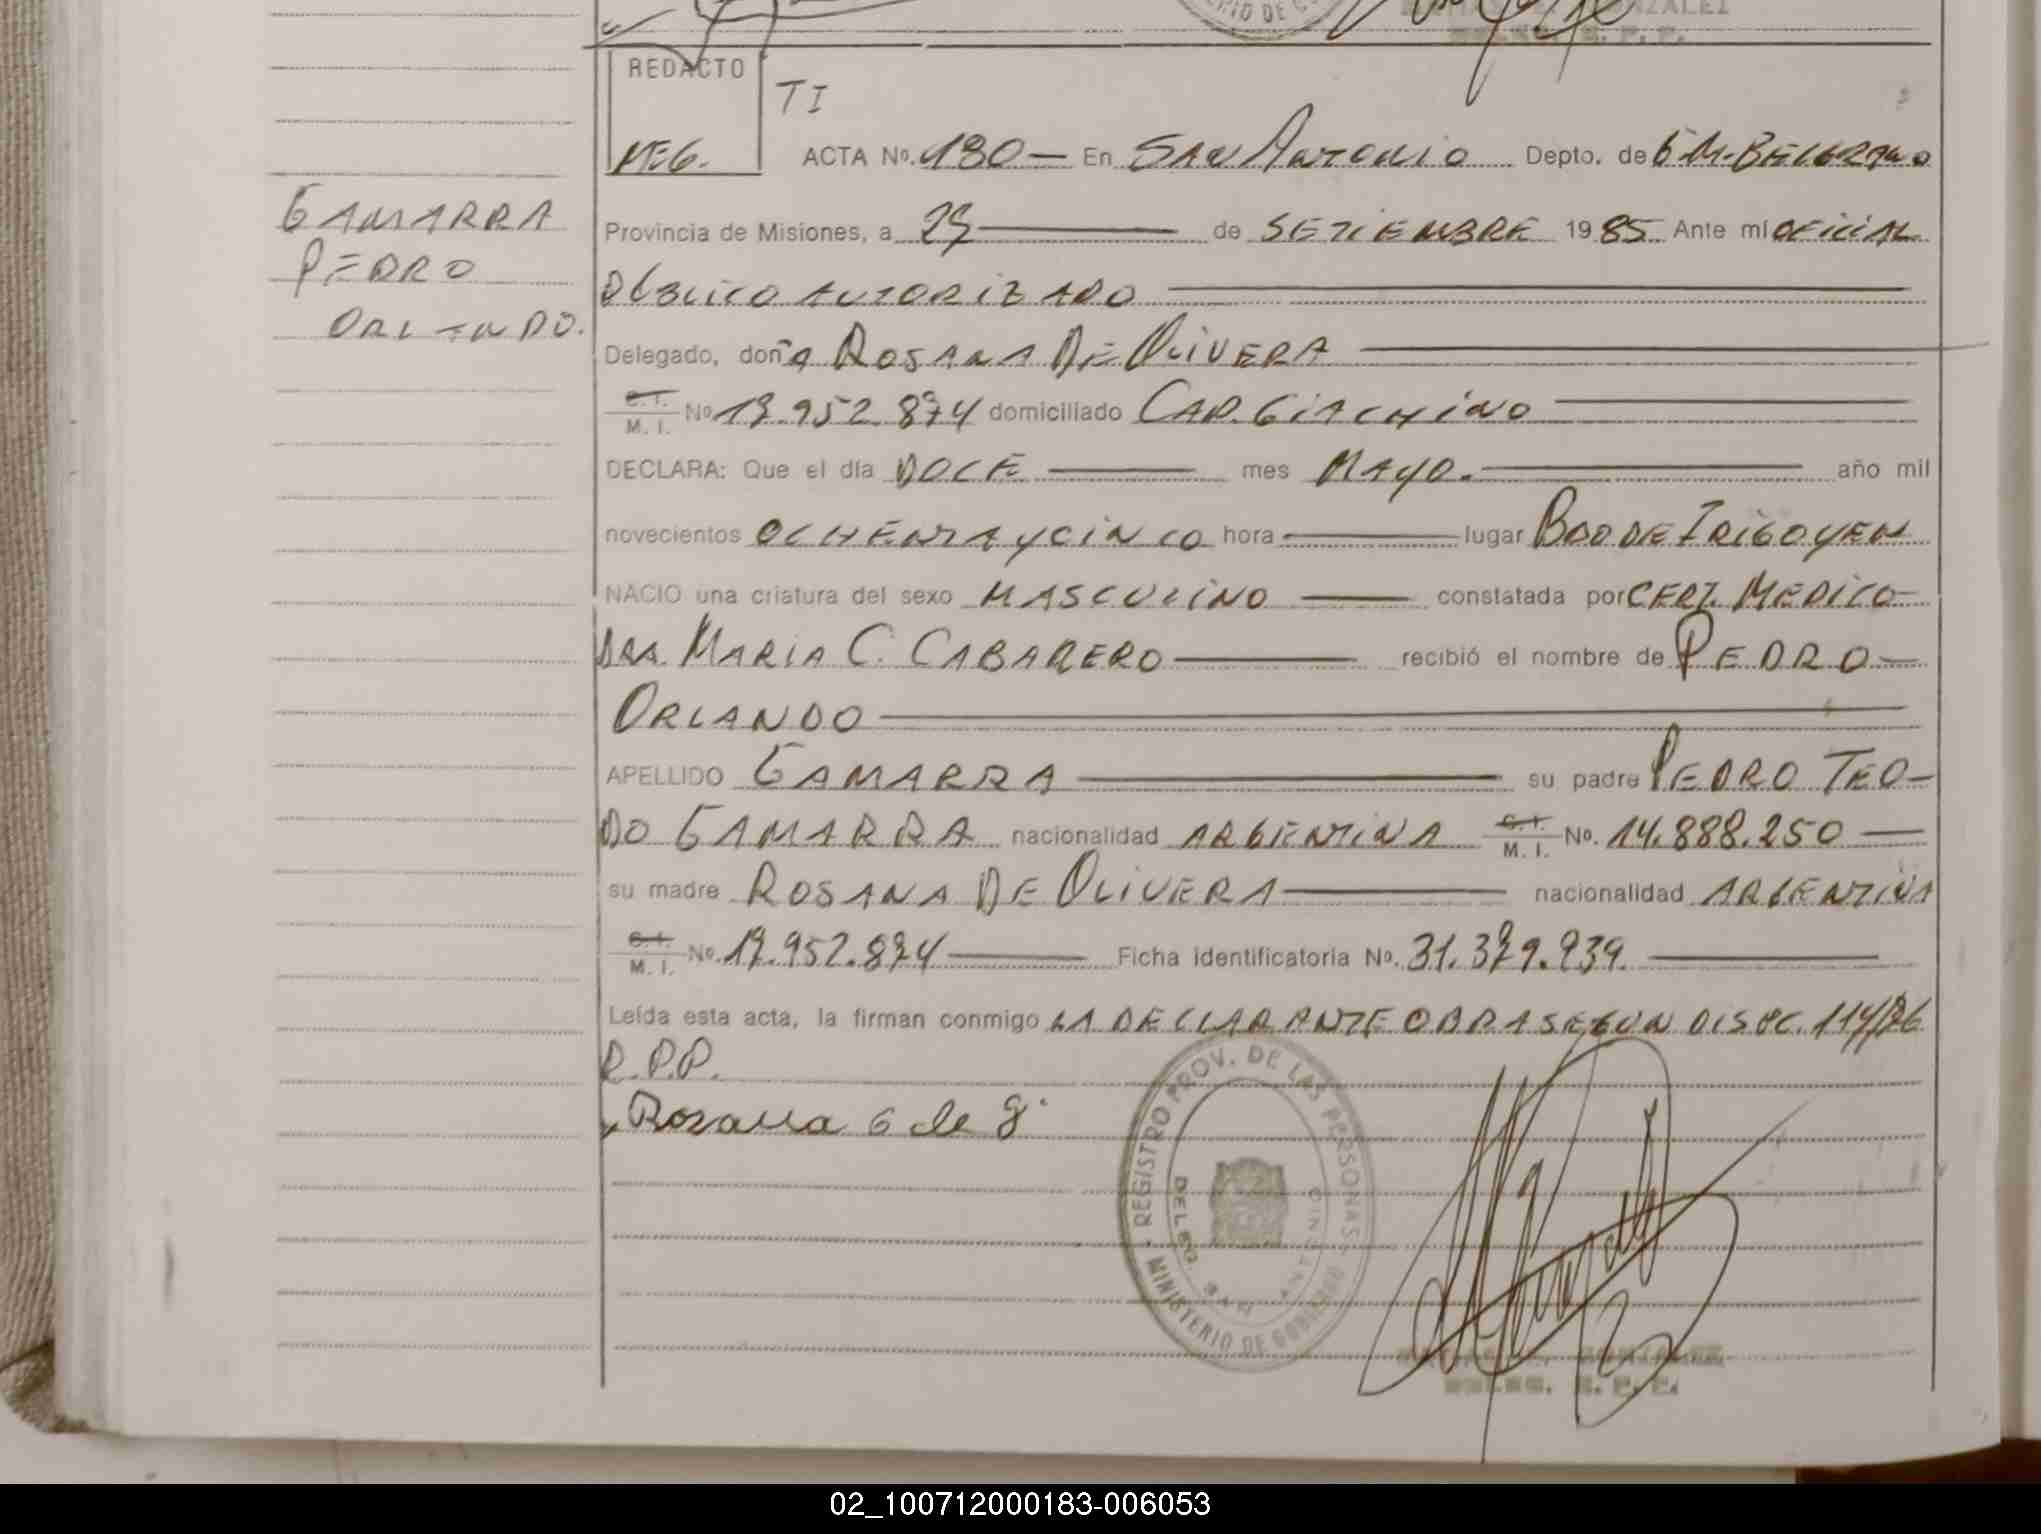 REDACTO
TI
MEG.
ACTA Nº. 190 — En SAN ANTONIO Depto. de G. M. BELGRANO
GAMARRA
PEDRO
ORLANDO.
Provincia de Misiones, a 25 de SETIEMBRE 1985 Ante mí OFICIAL
PUBLICO AUTORIZADO
Delegado, doña ROSANA DE OLIVERA
C. I. M. I. Nº 17.952.874 domiciliado CAP. GIACHINO
DECLARA: Que el día DOCE mes MAYO. año mil
novecientos OCHENTA Y CINCO hora lugar BDO DE IRIGOYEN
NACIO una criatura del sexo MASCULINO constatada por CERT. MEDICO
DRA. MARIA C. CABARERO recibió el nombre de PEDRO
ORLANDO
APELLIDO GAMARRA su padre PEDRO TEO-
DO GAMARRA nacionalidad ARGENTINA C. I. M. I. Nº. 14.888.250
su madre ROSANA DE OLIVERA nacionalidad ARGENTINA
C. I. M. I. Nº. 17.952.874 Ficha identificatoria Nº. 31.379.939.
Leída esta acta, la firman conmigo LA DECLARANTE OBRA SEGUN DISPC. 114/86
R.P.P.
Rozana G de G.
REGISTRO PROV. DE LAS PERSONAS
MINISTERIO DE GOBIERNO
DELEG. SAN ANTONIO
GONZALEZ
DELEG. R. P. P.
02_100712000183-006053